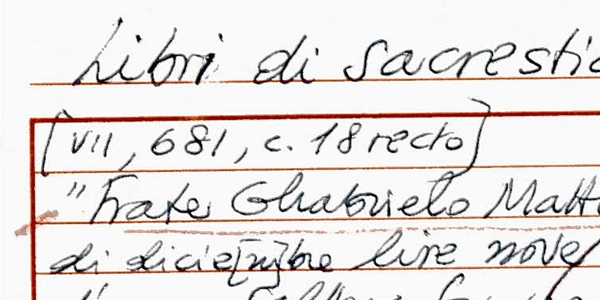 Libri di Sacrestia
[VII, 681, c. 18 recto]
"Frate Ghabrielo Matt
di dicie[m]bre lire nove